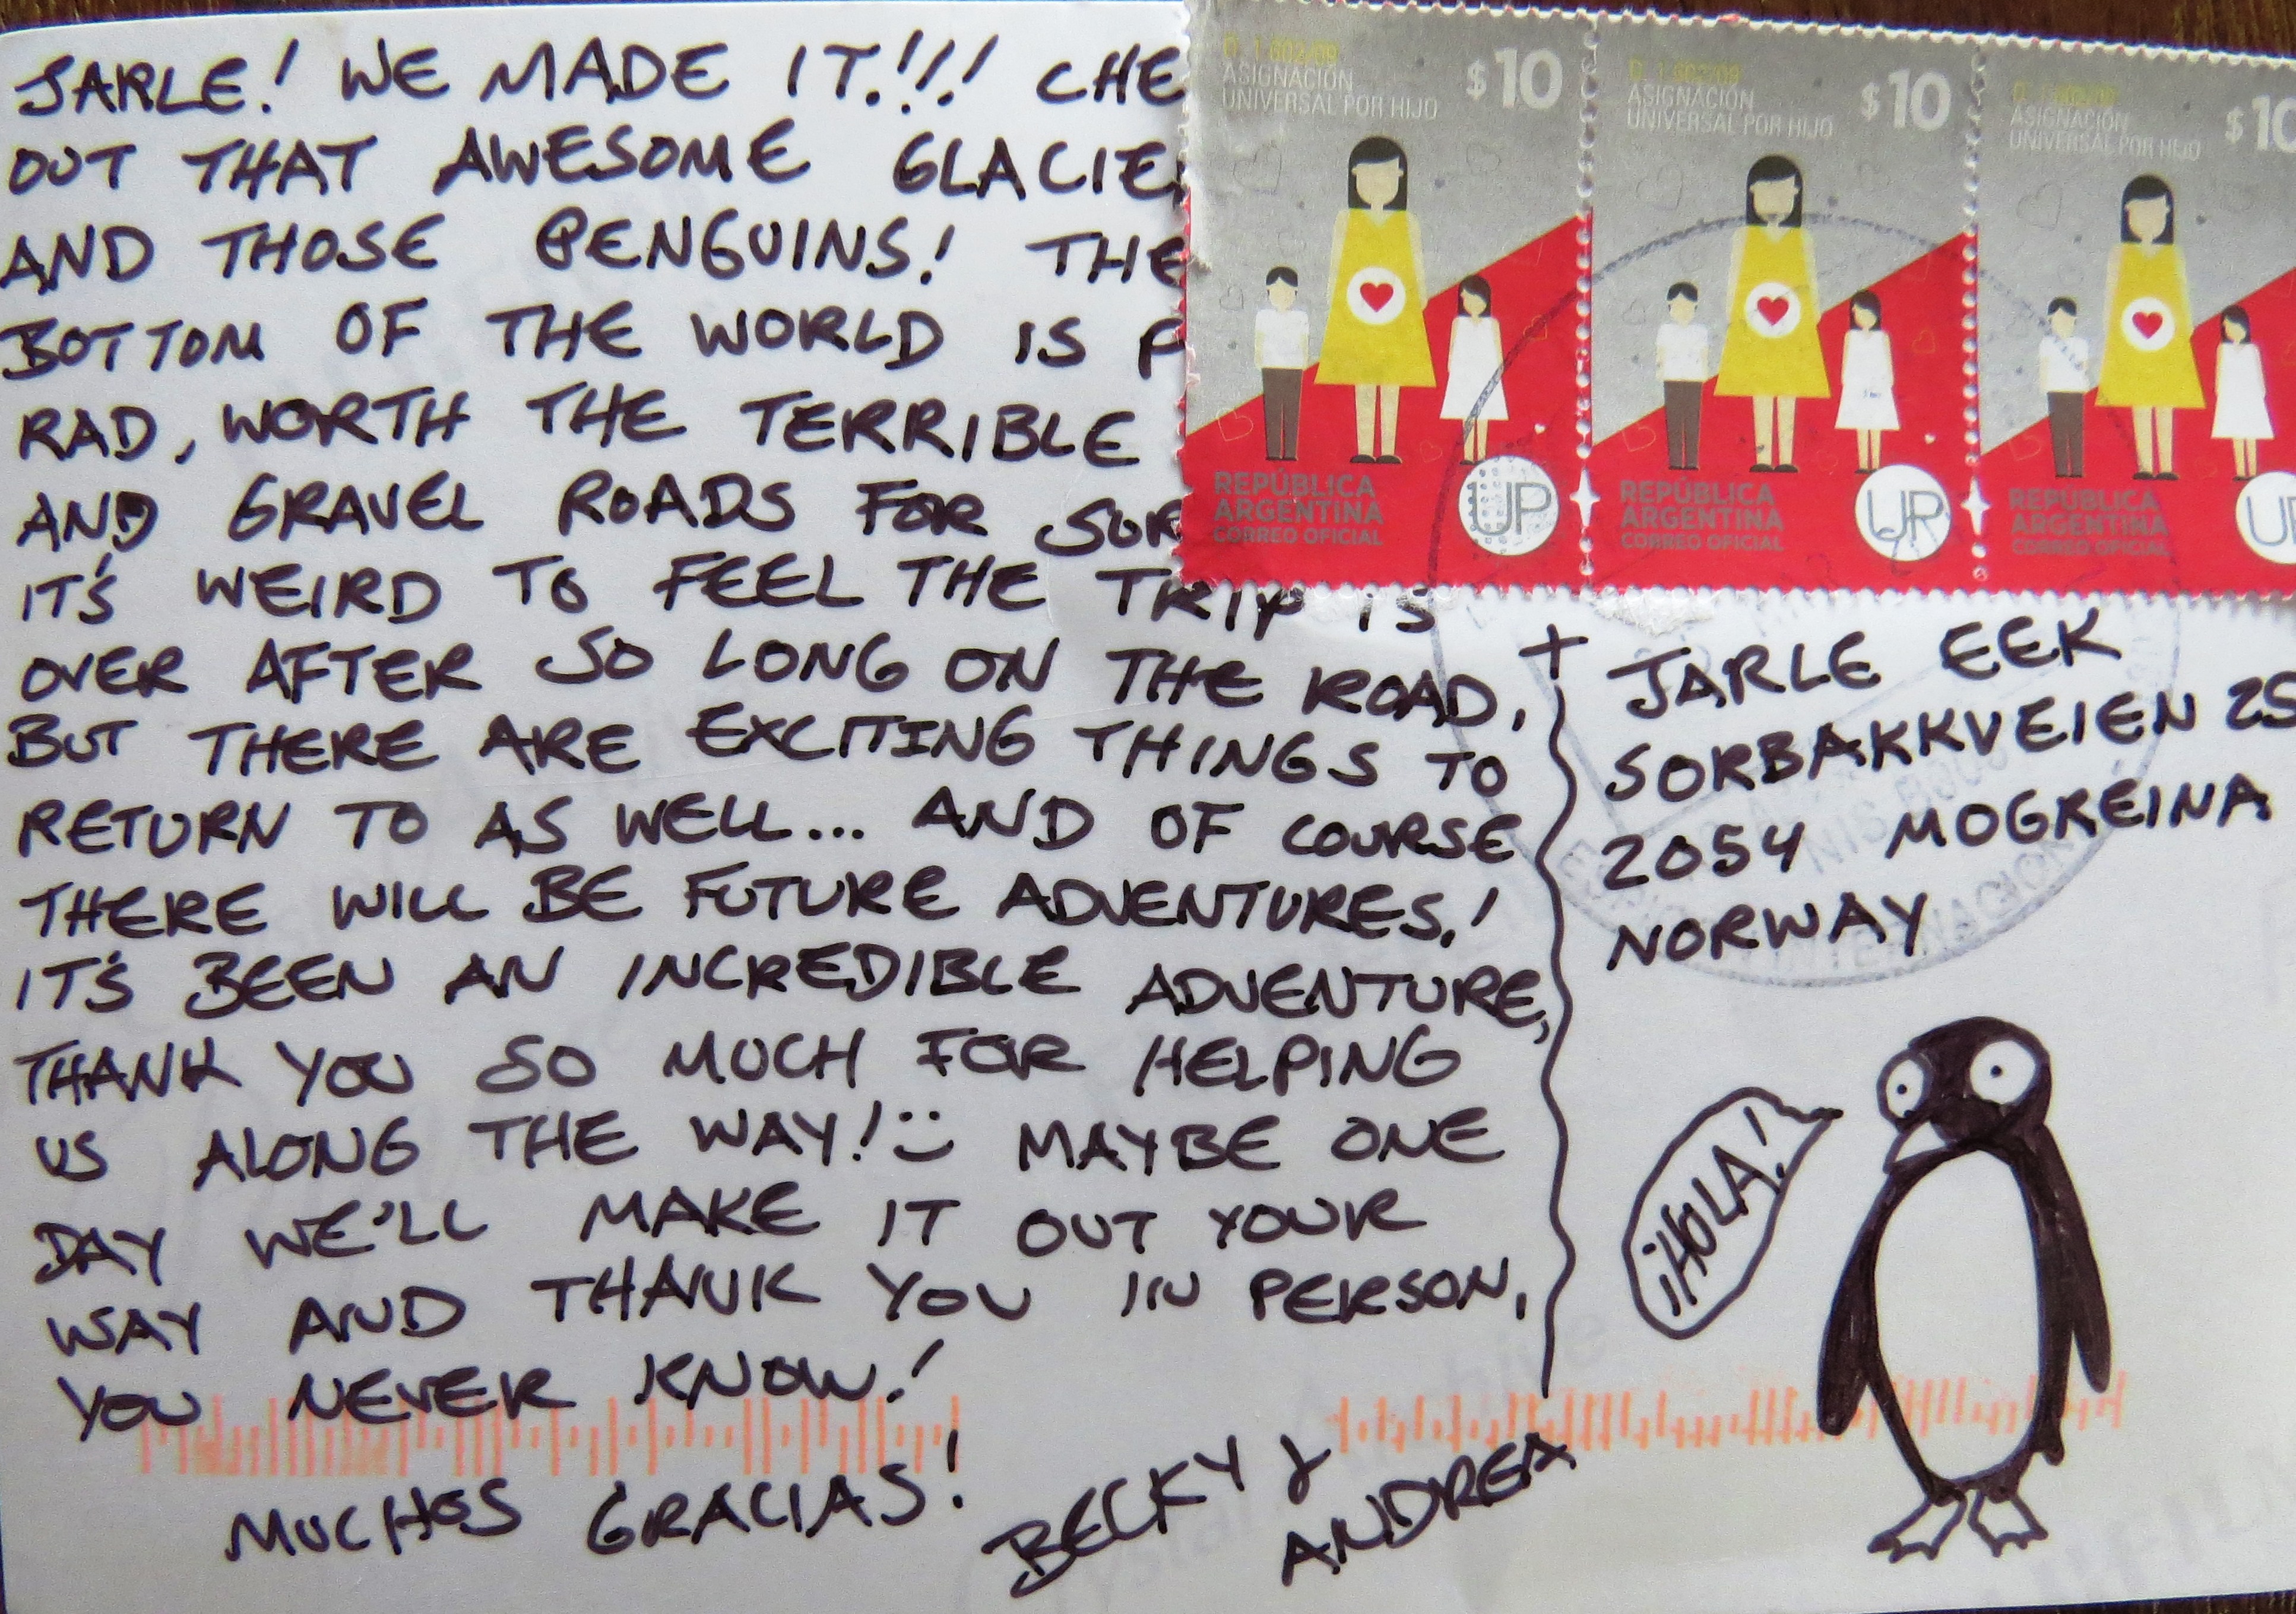 JARLE! WE MADE IT!!! CHE
OUT THAT AWESOME GLACIE
AND THOSE PENGUINS! THE
BOTTOM OF THE WORLD IS
RAD, WORTH THE TERRIBLE
AND GRAVEL ROADS FOR SUR
IT'S WEIRD TO FEEL THE TRIP IS
OVER AFTER SO LONG ON THE ROAD,
BUT THERE ARE EXCITING THINGS TO
RETURN TO AS WELL... AND OF COURSE
THERE WILL BE FUTURE ADVENTURES!
IT'S BEEN AN INCREDIBLE ADVENTURE,
THANK YOU SO MUCH FOR HELPING
US ALONG THE WAY! :) MAYBE ONE
DAY WE'LL MAKE IT OUT YOUR
WAY AND THANK YOU IN PERSON,
YOU NEVER KNOW!
MUCHOS GRACIAS!
BECKY Y
ANDREA
ASIGNACIÓN
UNIVERSAL POR HIJO
$10
REPÚBLICA
ARGENTINA
CORREO OFICIAL
UP
ASIGNACIÓN
UNIVERSAL POR HIJO
$10
REPÚBLICA
ARGENTINA
CORREO OFICIAL
UP
ASIGNACIÓN
UNIVERSAL POR HIJO
$10
REPÚBLICA
ARGENTINA
CORREO OFICIAL
UP
JARLE EEK
SORBAKKVEIEN 25
2054 MOGREINA
NORWAY
¡HOLA!